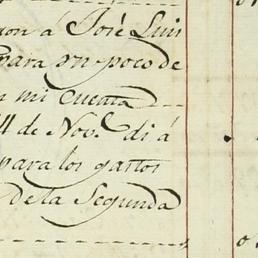 ron á José Luis
para un poco de
n mi cuenta
11 de Nov.e di á
para los gastos
de la Segunda